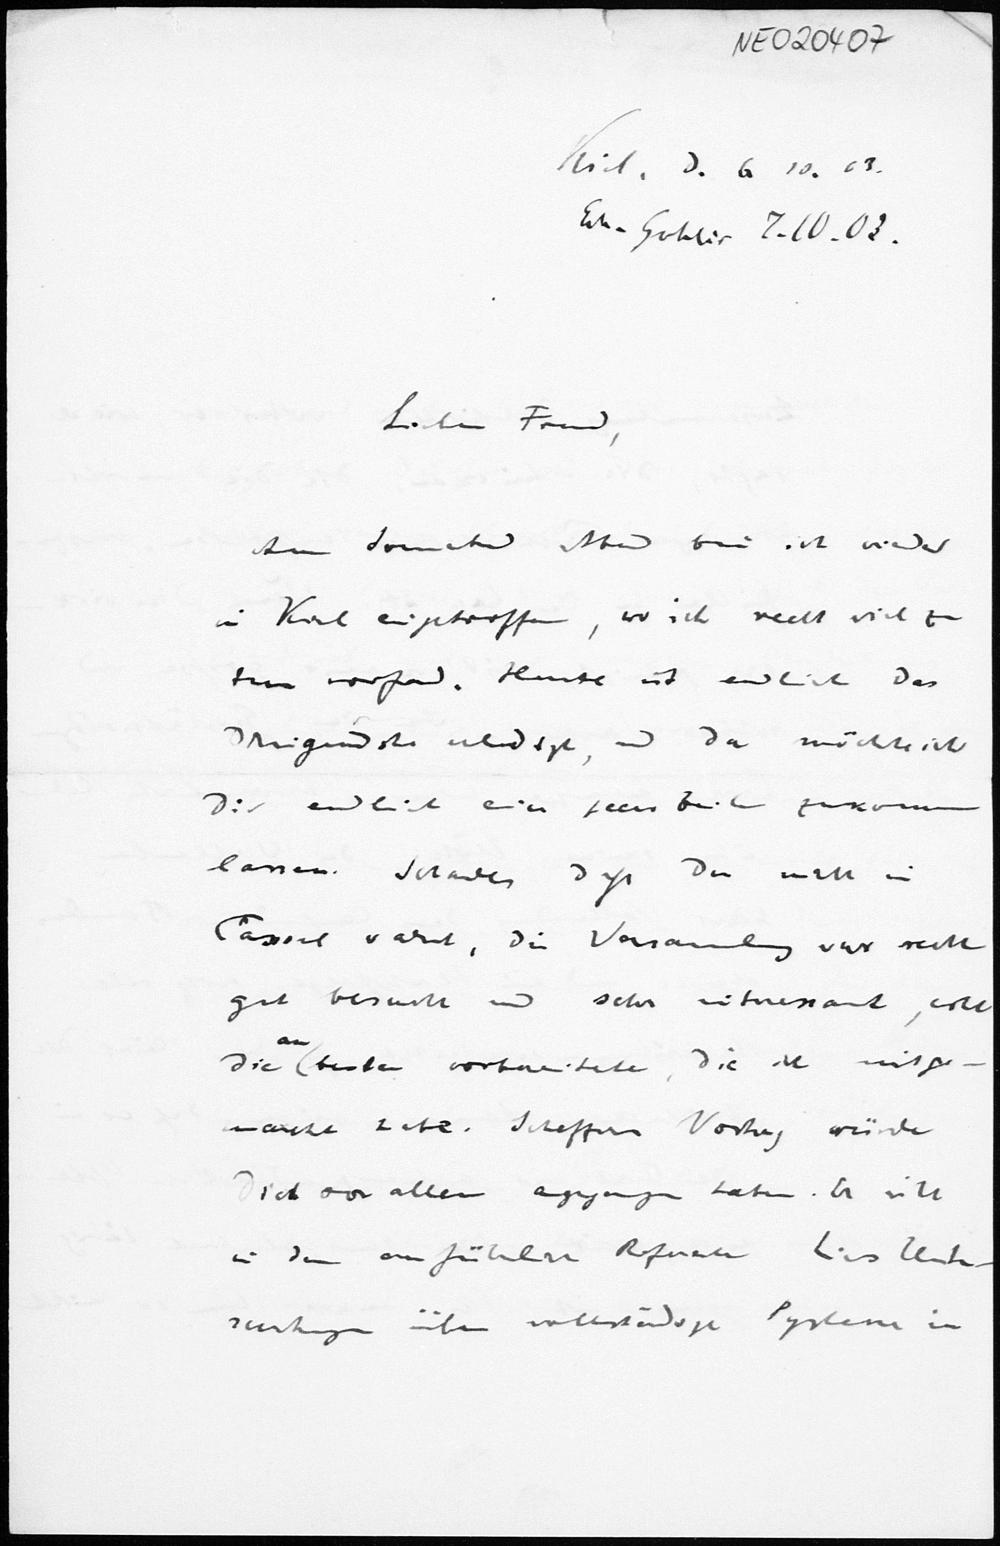 NE020407
Kiel, d. 6 10. 03.
7.10.03.
Lieber Freund,
Am Sonnabend Abend bin ich wieder
in Kiel eingetroffen, wo ich recht viel zu
tun vorfand. Heute ist endlich das
Dringendste erledigt, und da möchte ich
Dir endlich ein paar Zeilen zukommen
lassen. Schade, daß Du nicht in
Cassel warst, die Versammlung war recht
gut besucht und sehr interessant, wohl
die am besten vorbereitete, die ich mitge-
macht habe. Scheffers Vortrag würde
Dich vor allem angegangen haben. Er will
in dem ausführlichen Referate Lies Unter-
suchungen über vollständige Systeme in